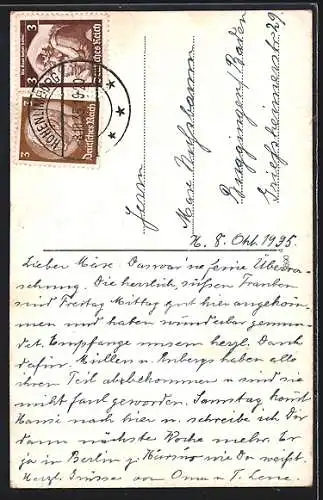 3
3
Deutsches Reich
Deutsches Reich
HOHENLIMBURG
Herrn
Max
Buggingen / Baden
29.
H. 8. Okt. 1935.
Lieber Max. Das war 'ne feine Überra-
schung. Die herrlich, süßen Trauben
sind Freitag Mittag gut hier angekom-
men und haben wunderbar gemun-
det. Empfange unsern herzl. Dank
dafür. Müllers u. haben alle
ihren Teil abbekommen u. sind sie
nicht faul geworden. Samstag kommt
Hansi nach hier u. schreibe ich Dir
dann nächste Woche mehr. Er
ja in Berlin z. wie Du weißt.
Herzl. Grüsse von Oma u. T. Lene.